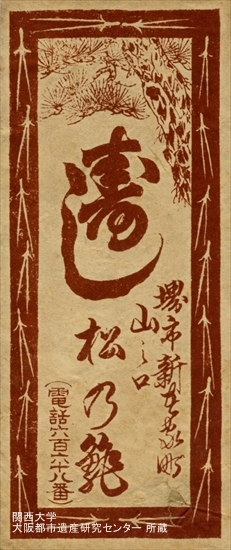 堺市新在家町
山之口
壽し
松乃
(電話六百六十八番)
関西大学
大阪都市遺産研究センター 所蔵